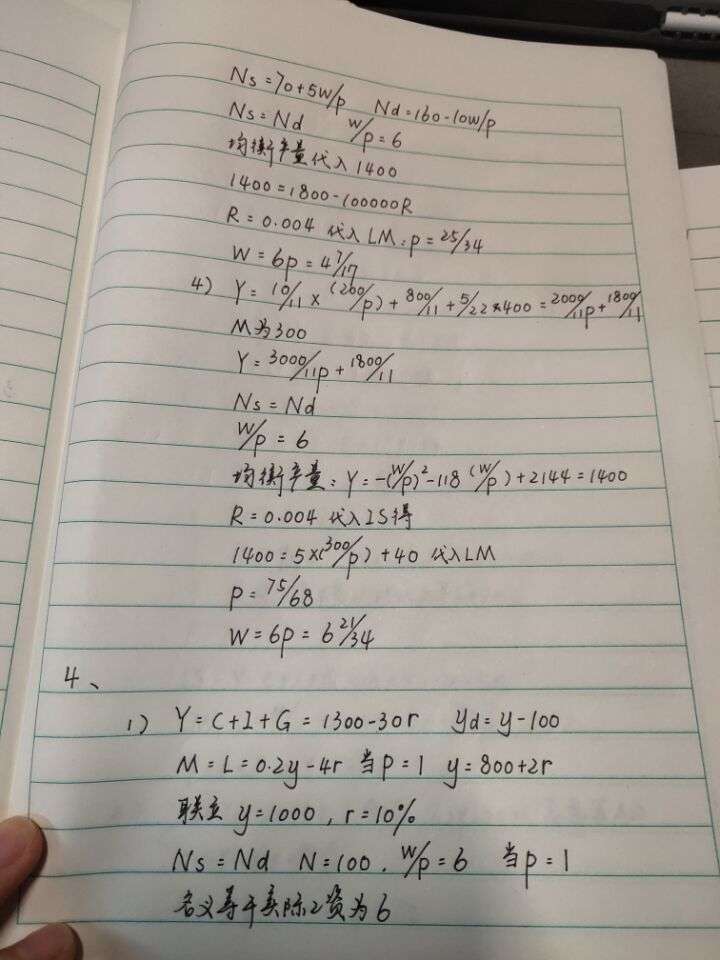 Ns=70+5w/p Nd=160-10w/p
Ns=Nd w/p=6
均衡产量代入1400
1400=1800-100000R
R=0.004 代入LM:p=25/34
W=6p=4 7/17
4) Y=10/11×(200/p)+800/11+5/22×400=2000/11p+1800/11
M为300
Y=3000/11p+1800/11
Ns=Nd
W/p=6
均衡产量:Y=-(W/p)²-118(W/p)+2144=1400
R=0.004 代入IS得
1400=5×(300/p)+40 代入LM
P=75/68
W=6p=6 21/34
4、
1) Y=C+I+G=1300-30r yd=y-100
M=L=0.2y-4r 当p=1 y=800+2r
联立 y=1000,r=10%
Ns=Nd N=100.W/p=6 当p=1
名义等于实际工资为6